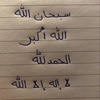 سبحان الله
الله أكبر
الحمدلله
لا إله إلا الله